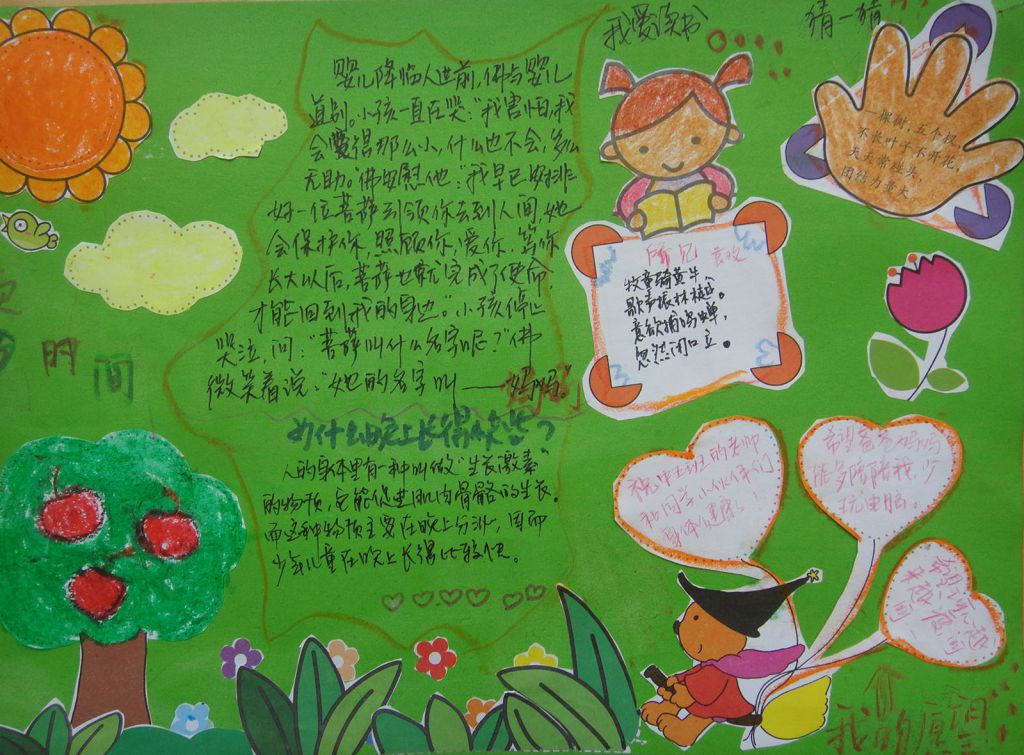 婴儿降临人世前,佛与婴儿
道别。小孩一直在哭:“我害怕,我
会变得那么小,什么也不会,多么
无助。”佛安慰他:“我早已安排
好一位菩萨到领你去到人间,她
会保护你,照顾你,爱你,等你
长大以后,菩萨也就完成了使命,
才能回到我的身边。”小孩停止
哭泣,问:“菩萨叫什么名字呢?”佛
微笑着说:“她的名字叫——妈妈。”
为什么晚上长得快些?
人的身体里有一种叫做“生长激素”
的物质,它能促进肌肉骨骼的生长。
而这种物质主要在晚上分泌,因而
少年儿童在晚上长得比较快。
我爱读书
所见 袁枚
牧童骑黄牛
歌声振林樾。
意欲捕鸣蝉,
忽然闭口立。
猜一猜
一棵树,五个杈,
不长叶子不开花,
天天常碰头,
团结力量大。
祝中班的老师
和同学小伙伴们
身体健康!
希望爸爸妈妈
能多陪陪我,少
玩电脑。
我的愿望
时间